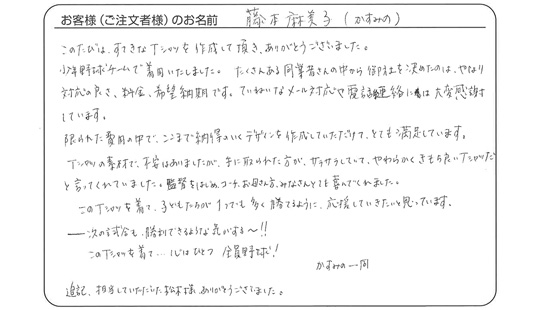 お客様(ご注文者様)のお名前 藤本麻美子(かすみの)
このたびは、すてきなTシャツを作成して頂き、ありがとうございました。
少年野球チームで着用いたしました。たくさんある同業者さんの中から御社を決めたのは、やはり
対応の良さ、料金、希望納期です。ていねいなメール対応や電話連絡には大変感謝
しています。
限られた費用の中で、ここまで納得のいくデザインを作成していただけて、とても満足しています。
Tシャツの素材で、不安はありましたが、手に取られた方が、サラサラしていて、やわらかくきもち良いTシャツだ
と言ってくれていました。監督をはじめ、コーチ、お母さん方、みなさんとても喜んでくれました。
このTシャツを着て、子どもたちが1つでも多く勝てるように、応援していきたいと思っています。
―次の試合も、勝利できるような気がする〜!!
このTシャツを着て...心はひとつ 全員野球!
かすみの一同
追記、担当していただいた松本様、ありがとうございました。